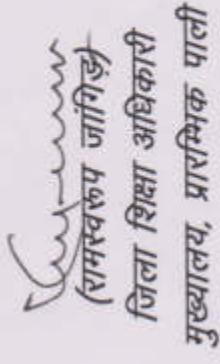 (रामस्वरूप जांगिड़)
जिला शिक्षा अधिकारी
मुख्यालय, प्रारम्भिक पाली